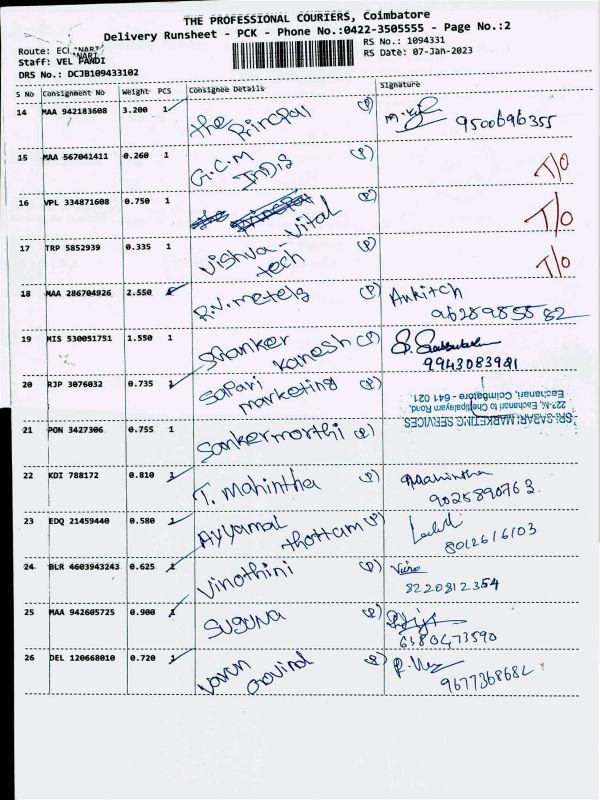 THE PROFESSIONAL COURIERS, Coimbatore
Delivery Runsheet - PCK - Phone No.:0422-3505555 - Page No.:2
Route: ECHANARI
RS No.: 1094331
Staff: VEL PANDI
RS Date: 07-Jan-2023
DRS No.: DCJB109433102
S No Consignment No Weight PCS Consignee Details Signature
14 MAA 942183608 3.200 1 The Principal 9500696355
15 MAA 567041411 0.260 1 G.C.M India T/O
16 VPL 334871608 0.750 1 Vital T/O
17 TRP 5852939 0.335 1 Vishva-tech T/O
18 MAA 286704926 2.550 1 R.V. metels Ankitch
9628985582
19 MIS 530051751 1.550 1 Sanker Kanesh
9943083981
20 RJP 3076032 0.735 1 Sapari marketing
SRI SABARI MARKETING SERVICES
Eachanari to Chettipalayam Road,
Eachanari, Coimbatore - 641 021.
21 PON 3427306 0.755 1 Sankermorthi
22 KDI 788172 0.810 1 T. Mahintha Maahintha
9025890763
23 EDQ 21459440 0.580 1 Ayyamal thottam
8012616103
24 BLR 4603943243 0.625 1 Vinothini
8220812354
25 MAA 942605725 0.900 1 Suguna
6380473590
26 DEL 120668010 0.720 1 Varun Govind
9677368682